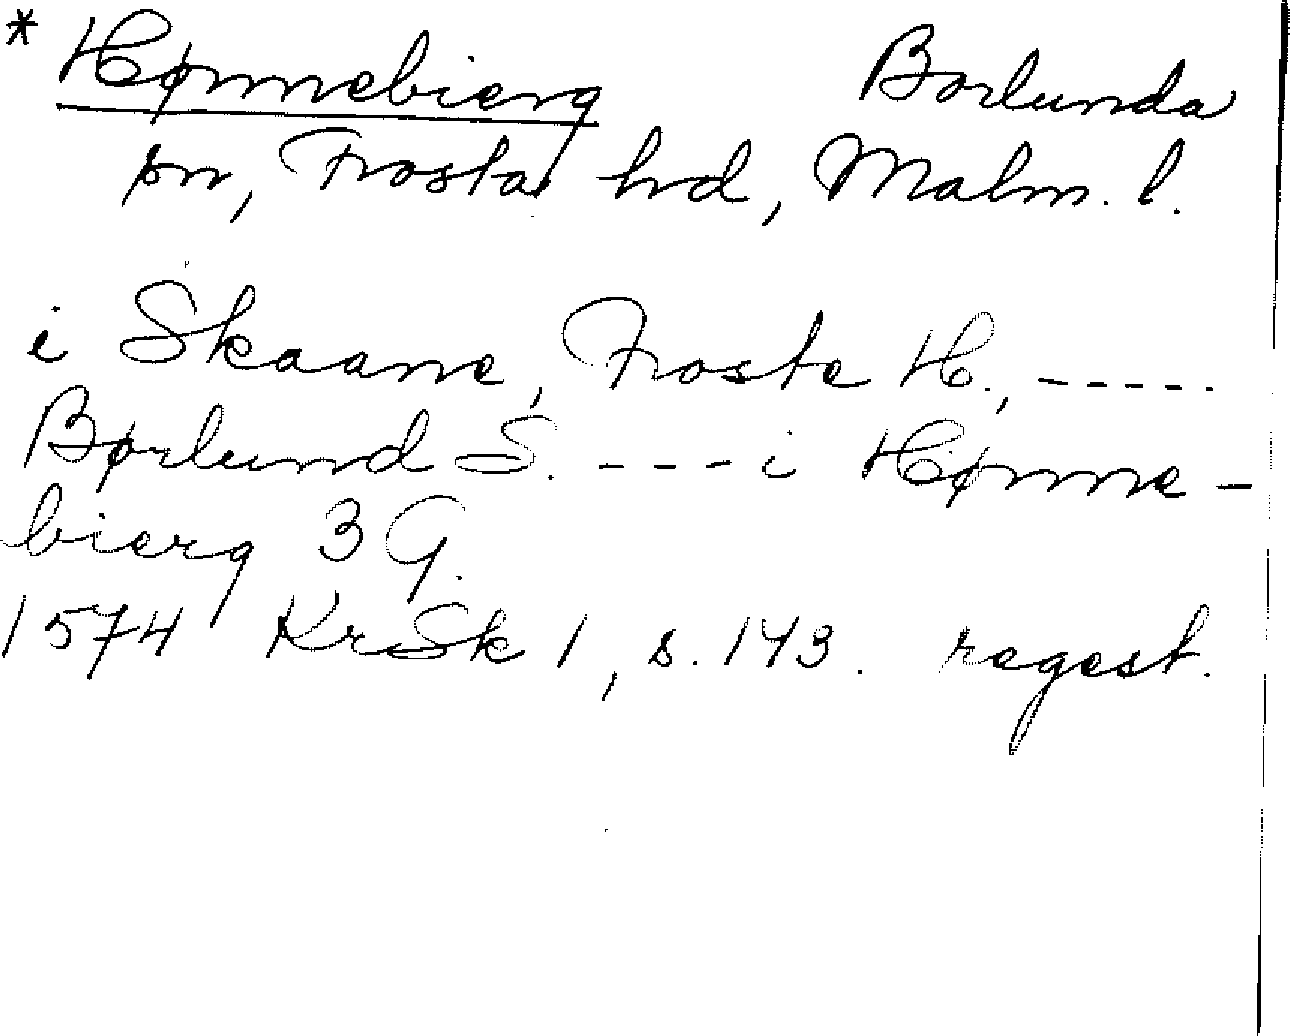 * Hønnebierg Borlunda
sn, Frosta hd, Malm. l.
i Skaane, Froste H., -----
Børlund S. ---- i Hønne-
bierg 3 G.
1574 KrSk 1, s. 143. regest.